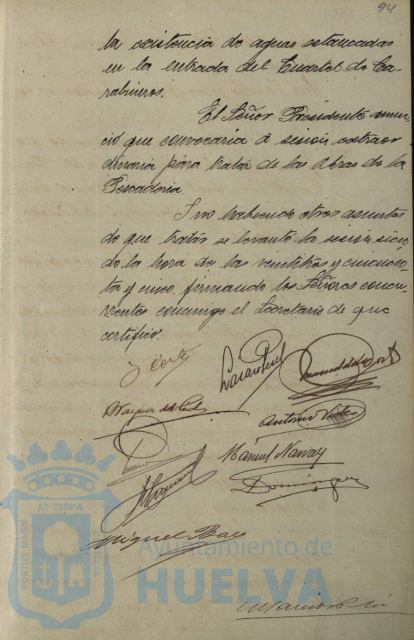 94
la existencia de aguas estancadas
en la entrada del Cuartel de Ca-
rabineros.
El Señor Presidente anun-
ció que convocaria á sesión extraor
dinaria para tratar de las Obras de la
Pescaderia.
Y no habiendo otros asuntos
de que tratar se levantó la sesión sien
do la hora de las veintitres y cincuen-
ta y cinco, firmando los Señores concu-
rrentes conmigo el Secretario de que
certifico.
Antonio
Manuel
Dominguez
Miguel
PORTUS MARIS
ET TERRA
Ayuntamiento de
HUELVA